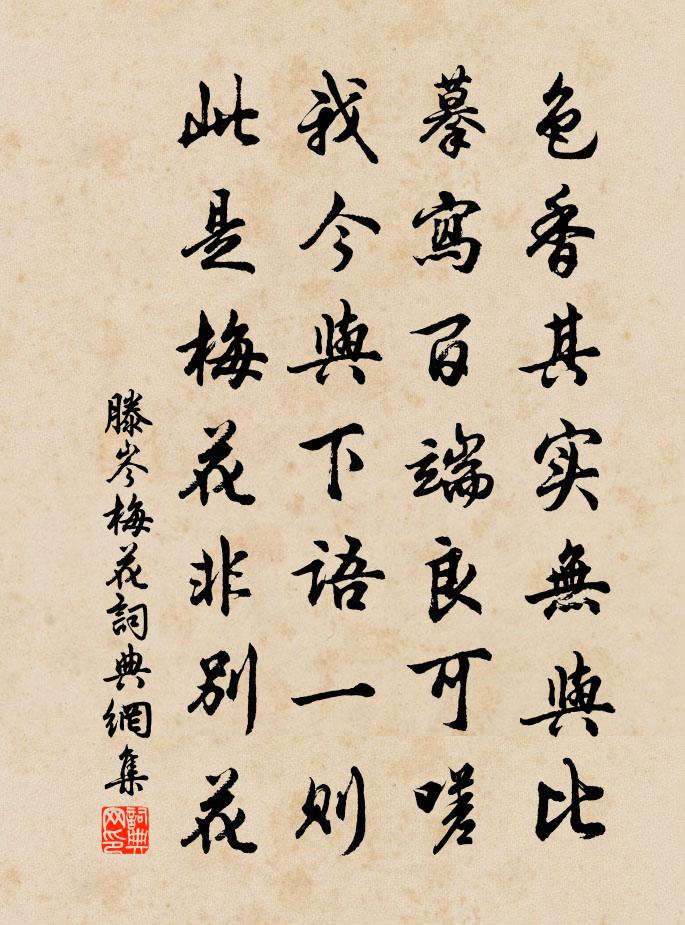 色香其实無與比
摹寫百端良可嗟
我今與下語一则
此是梅花非别花
滕岑梅花詞典網集
詞典網印